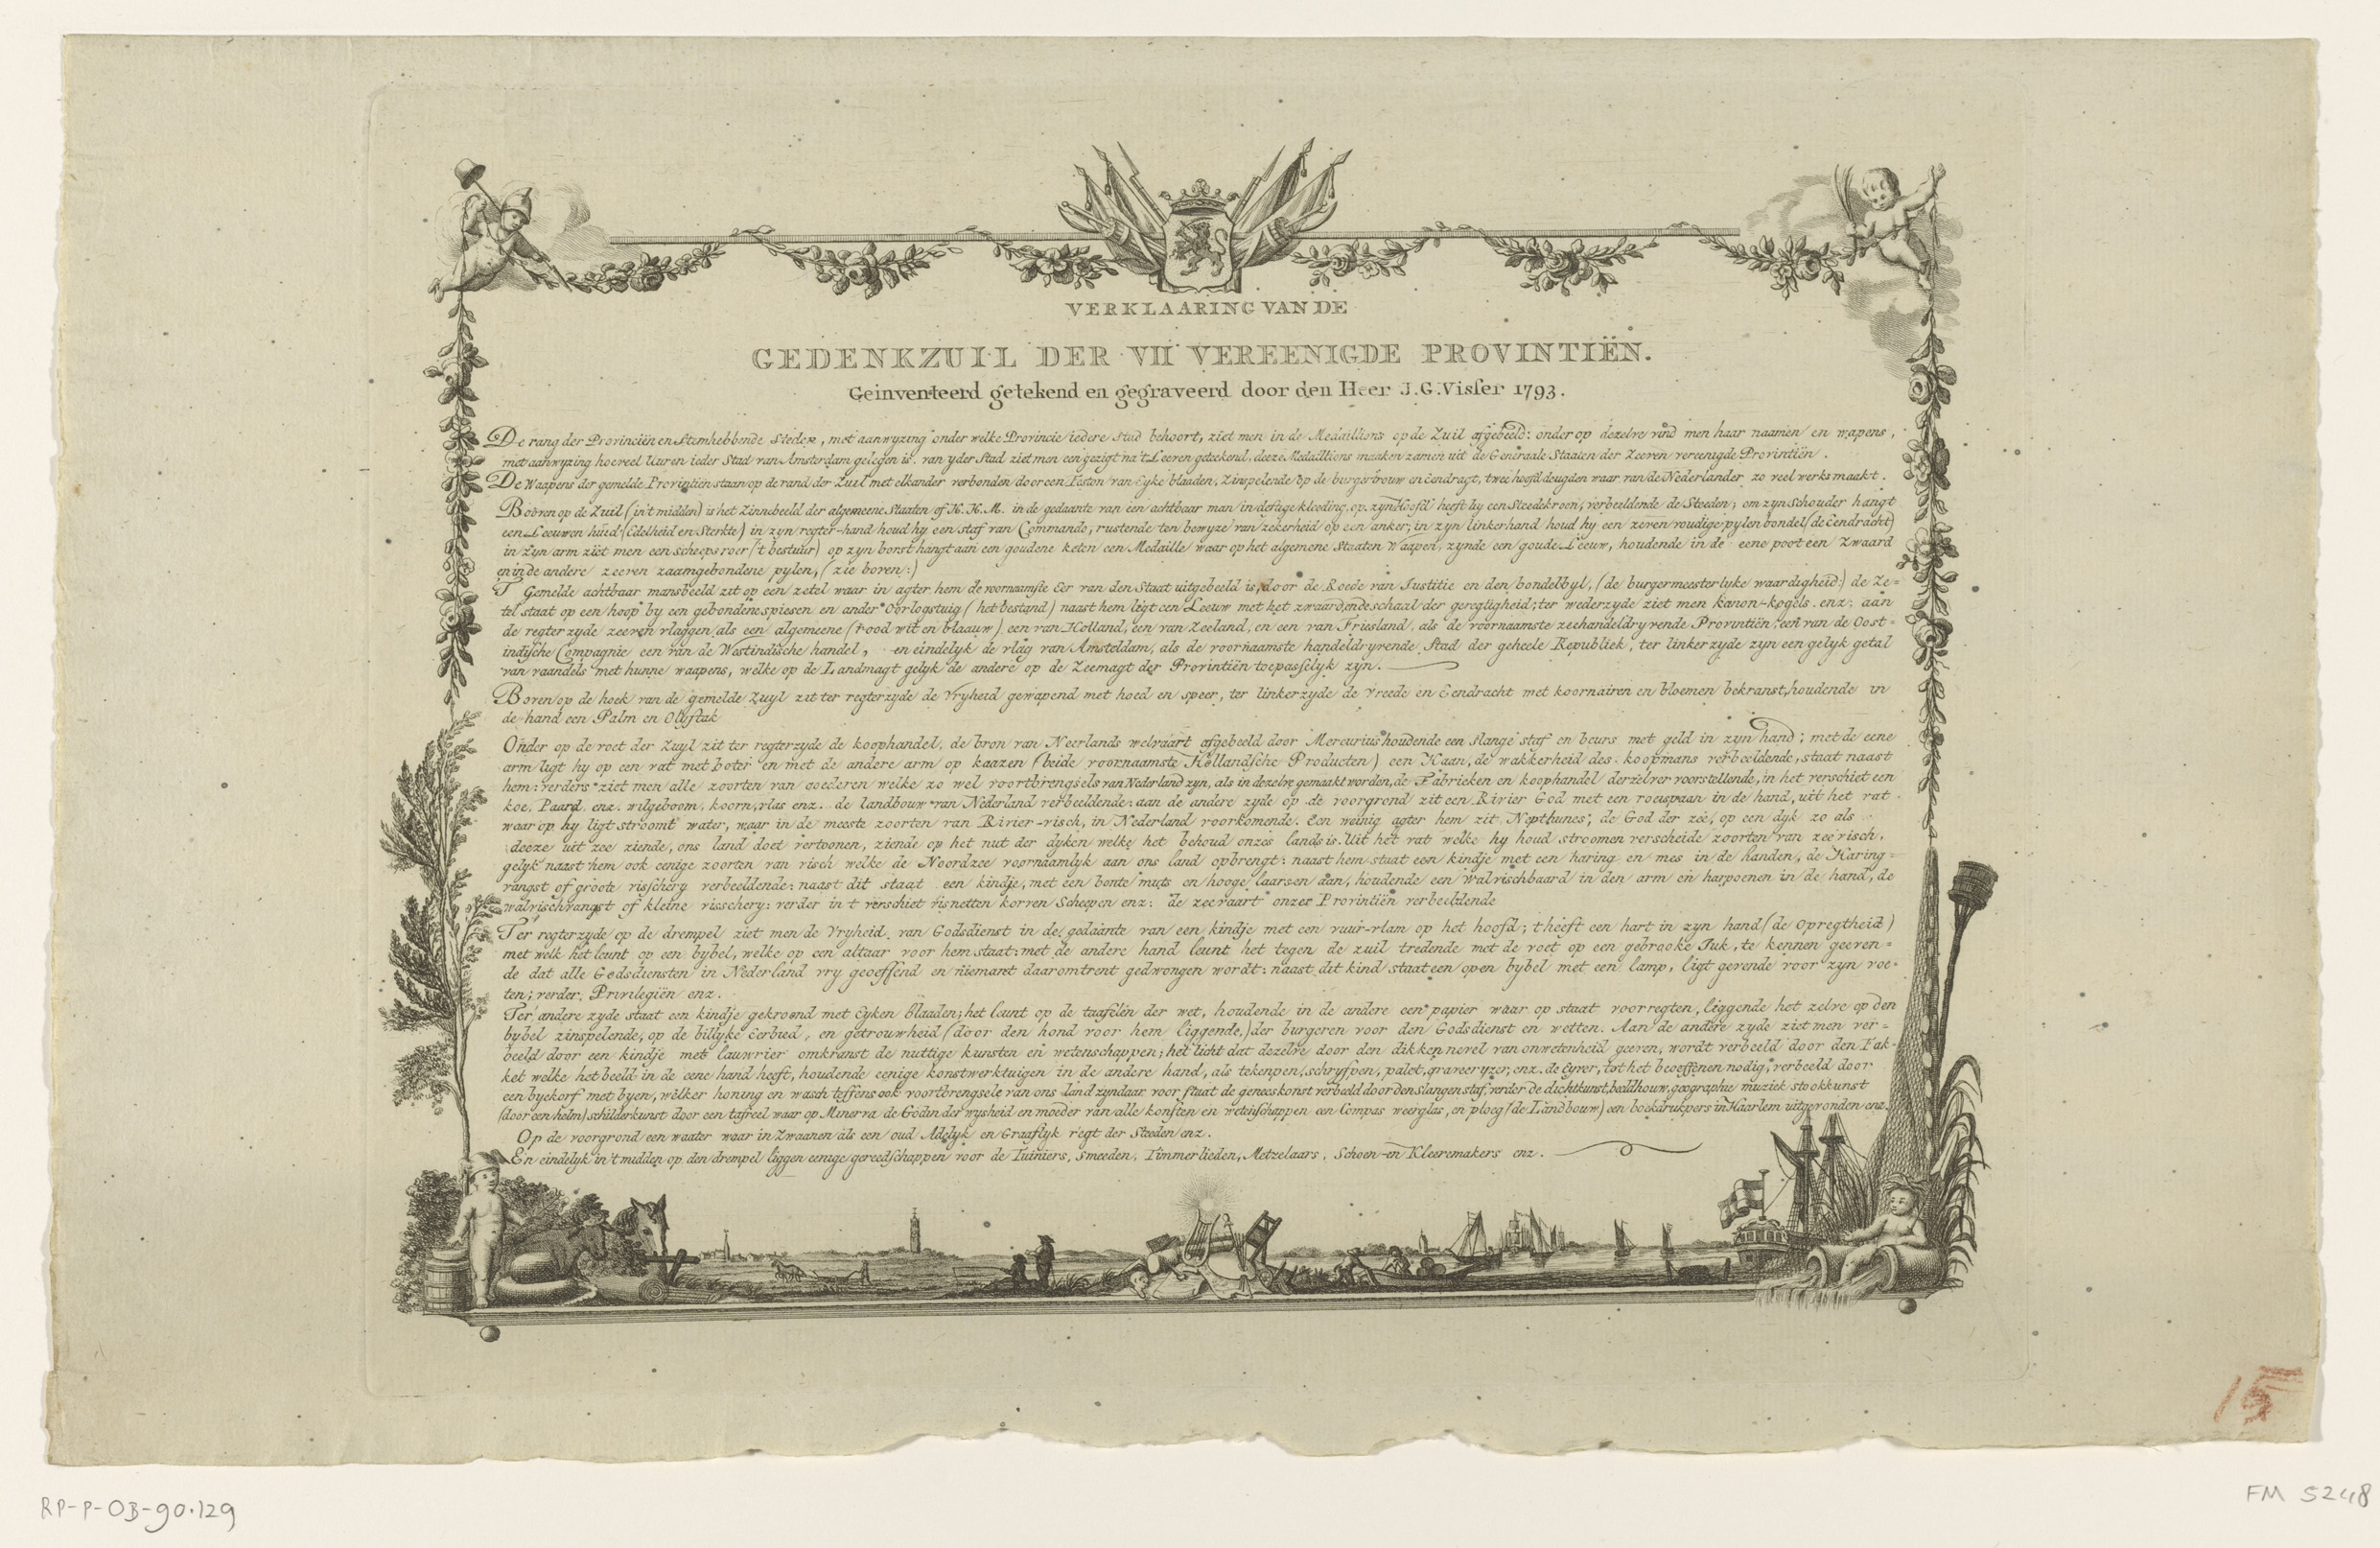 VERKLAARING VAN DE
GEDENKZUIL DER VII VEREENIGDE PROVINTIËN.
Geinventeerd getekend en gegraveerd door den Heer J.G.Visser 1793.
De rang der Provinciën en Stemhebbende Steden, met aanwyzing onder welke Provincie iedere Stad behoort, ziet men in de Medaillions op de Zuil afgebeeld: onder op dezelve vind men haar naamen en wapens,
met aanwyzing hoeveel Uuren ieder Stad van Amsterdam gelegen is. van yder Stad ziet men een gezigt na 't Leeven geteekend, deeze Medaillions maaken zamen uit de Generaale Staaten der Zeeven vereenigde Provintiën.
De Waapens der gemelde Provintiën staan op de rand der Zuil met elkander verbonden door een Feston van Eyke blaaden, Zinspelende op de burgertrouw en Eendragt, twee hoofddeugden waar van de Nederlander zo veel werks maakt.
Boven op de Zuil (in 't midden) is het Zinnebeeld der algemeene Staaten of H.H.M. in de gedaante van een achtbaar man in deftige kleeding, op zyn Hoofd heeft hy een Steedekroon, verbeeldende de Steeden; om zyn Schouder hangt
een Leeuwen huid (Edelheid en Sterkte) in zyn regter-hand houd hy een staf van Commando, rustende ten bewyze van zekerheid op een anker; in zyn linkerhand houd hy een zeven voudige pylen bondel (de Eendracht)
in zyn arm ziet men een scheeps roer ('t bestuur) op zyn borst hangt aan een goudene keten een Medaille waar op het algemene Staaten Waapen, zynde een goude Leeuw, houdende in de eene poot een Zwaard
en in de andere zeeven zaamgebondene pylen, (zie boven:)
T Gemelde achtbaar mansbeeld zit op een zetel waar in agter hem de voornaamste Eer van den Staat uitgebeeld is, door de Roede van Justitie en den bondelbyl, (de burgermeesterlyke waardigheid:) de Ze=
tel staat op een hoop by een gebondene spiesen en ander Oorlogstuig (het bestand) naast hem ligt een Leeuw met het zwaard en de schaal der geregtigheid; ter wederzyde ziet men kanon-kogels. enz: aan
de regter zyde zeeven vlaggen als een algemeene (rood wit en blaauw) een van Holland, een van Zeeland, en een van Friesland, als de voornaamste zeehandeldryvende Provintiën: een van de Oost=
indische Compagnie een van de Westindische handel, en eindelyk de vlag van Amsteldam, als de voornaamste handeldryvende Stad der geheele Republiek, ter linker zyde zyn een gelyk getal
van vaandels met hunne waapens, welke op de Landmagt gelyk de andere op de Zeemagt der Provintiën toepasselyk zyn.
Boven op de hoek van de gemelde Zuyl zit ter regterzyde de Vryheid gewapend met hoed en speer, ter linkerzyde de Vreede en Eendracht met koornairen en bloemen bekranst, houdende in
de hand een Palm en Olyftak
Onder op de voet der Zuyl zit ter regterzyde de koophandel, de bron van Neerlands welvaart afgebeeld door Mercurius houdende een Slange staf en beurs met geld in zyn hand; met de eene
arm ligt hy op een vat met boter en met de andere arm op kaazen (beide voornaamste Hollandsche Producten) een Haan, de wakkerheid des koopmans verbeeldende, staat naast
hem: verders ziet men alle zoorten van goederen welke zo wel voortbrengsels van Nederland zyn, als in dezelve gemaakt worden, de Fabrieken en koophandel derzelver voorstellende, in het verschiet een
koe, Paard enz. wilgeboom, koorn, vlas enz. de landbouw van Nederland verbeeldende: aan de andere zyde op de voorgrond zit een Rivier God met een roeispaan in de hand, uit het vat
waar op hy ligt stroomt water, waar in de meeste zoorten van Rivier-visch, in Nederland voorkomende. Een weinig agter hem zit Nepthunes, de God der zee, op een dyk zo als
deeze uit zee ziende, ons land doet vertoonen, ziende op het nut der dyken welke het behoud onzes lands is. Uit het vat welke hy houd stroomen verscheide zoorten van zee visch,
gelyk naast hem ook eenige zoorten van visch welke de Noordzee voornamlyk aan ons land opbrengt: naast hem staat een kindje met een haring en mes in de handen, de Haring=
vangst of groote visschery verbeeldende: naast dit staat een kindje, met een bonte muts en hooge laarsen aan, houdende een walvischbaard in den arm en harpoenen in de hand, de
walvischvangst of kleine visschery: verder in t verschiet visnetten korven Scheepen enz: de zeevaart onzer Provintiën verbeeldende
Ter regterzyde op de drempel ziet men de Vryheid van Godsdienst in de gedaante van een kindje met een vuur-vlam op het hoofd; t heeft een hart in zyn hand (de Opregtheid)
met welk het leunt op een bybel, welke op een altaar voor hem staat: met de andere hand leunt het tegen de zuil tredende met de voet op een gebrooke Juk, te kennen geeven=
de dat alle Godsdiensten in Nederland vry geoeffend en niemant daaromtrent gedwongen wordt: naast dit kind staat een open bybel met een lamp, ligt gevende voor zyn voe=
ten; verder, Privilegiën enz.
Ter andere zyde staat een kindje gekroond met Eyken blaaden; het leunt op de taafelen der wet, houdende in de andere een papier waar op staat voorregten, liggende het zelve op den
bybel zinspelende, op de billyke eerbied, en getrouwheid (door den hond voor hem liggende,) der burgeren voor den Godsdienst en wetten. Aan de andere zyde ziet men ver=
beeld door een kindje met lauwrier omkranst de nuttige kunsten en wetenschappen; het licht dat dezelve door den dikken nevel van onwetenheid geeven, wordt verbeeld door den Fak-
kel welke het beeld in de eene hand heeft, houdende eenige konstwerktuigen in de andere hand, als tekenpen, schryfpen, palet, graveeryzer, enz. de Eyver, tot het beoeffenen nodig, verbeeld door
een byekorf met byen, welker honing en wasch teffens ook voortbrengsele van ons land zyn daar voor staat de geneeskonst verbeeld door den Slangen staf, verder de dichtkunst, beeldhouw, geographie muziek stookkunst
(door een helm) schilderkunst door een tafreel waar op Minerva de Godin der wysheid en moeder van alle konsten en wetenschappen een Compas weerglas, en ploeg (de Landbouw) een boekdrukpers in Haarlem uitgevonden enz.
Op de voorgrond een waater waar in Zwaanen als een oud Adelyk en Graaflyk regt der Steeden enz.
En eindelyk in 't midden op den drempel liggen eenige gereedschappen voor de Tuiniers, Smeeden, Timmerlieden, Metzelaars, Schoen-en Kleeremakers enz.
15
RP-P-OB-90.129
FM 5248